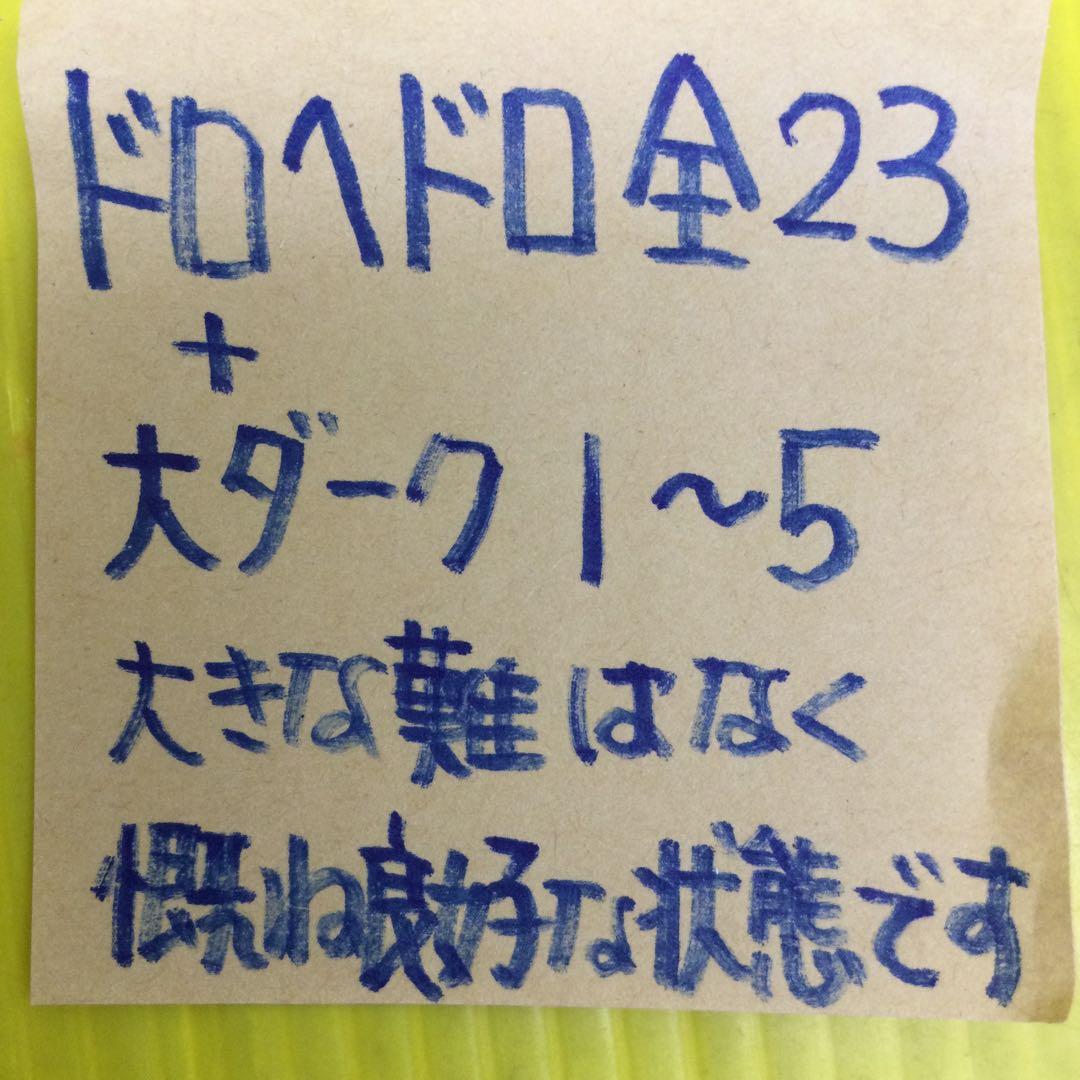 ドロヘドロ全23
+
大ダーク1～5
大きな難はなく
慨ね良好な状態です